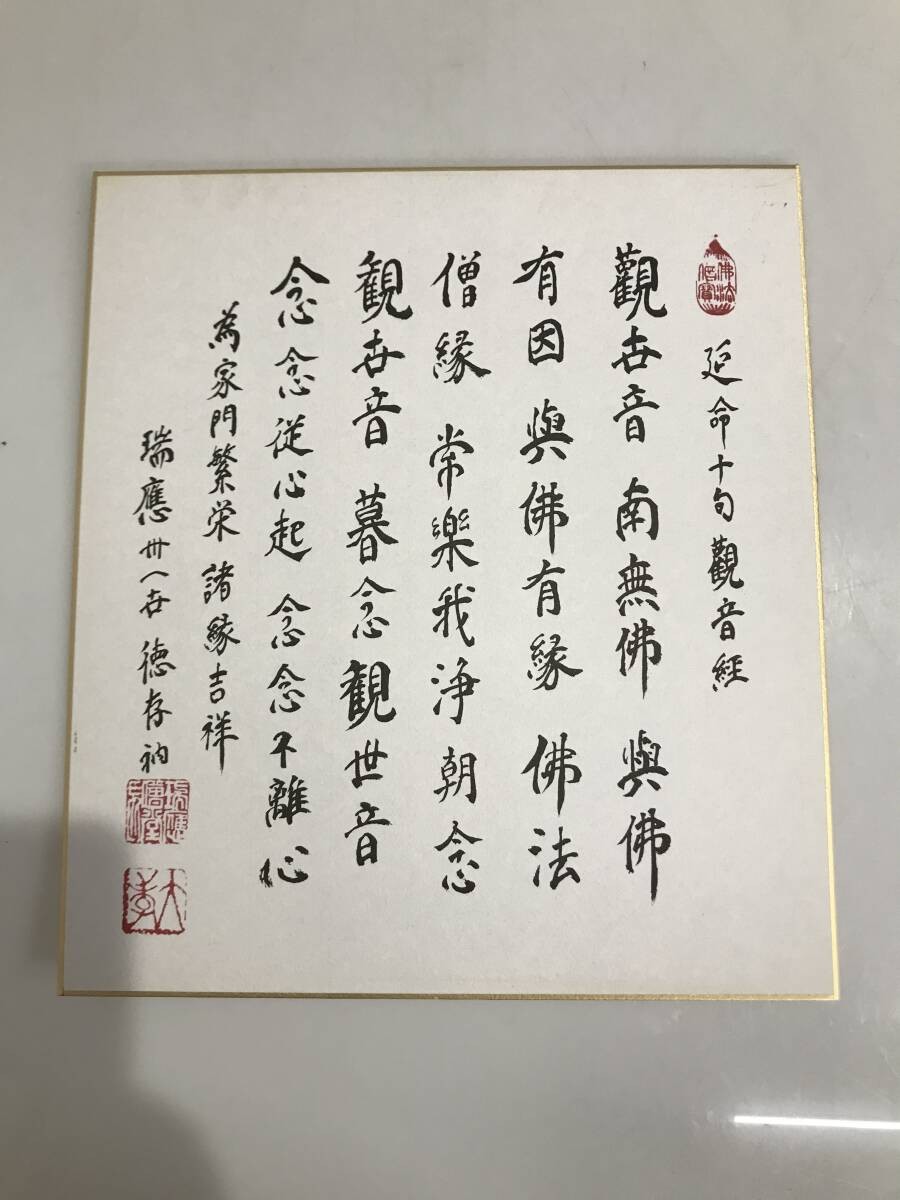 佛法僧寶
延命十句觀音經
觀世音 南無佛 與佛
有因 與佛有縁 佛法
僧縁 常樂我浄 朝念
観世音 暮念観世音
念念従心起 念念不離心
為家門繁栄 諸縁吉祥
瑞應卅一世 徳存衲